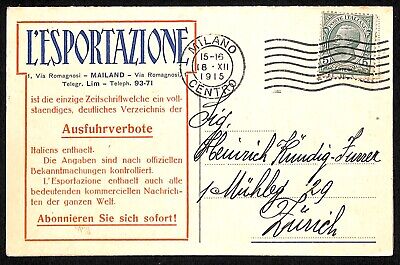 L'ESPORTAZIONE
1, Via Romagnosi - MAILAND - Via Romagnosi,
Telegr. Lim - Teleph. 93-71
ist die einzige Zeitschriftwelche ein voll-
staendiges, deutliches Verzeichnis der
Ausfuhrverbote
Italiens enthaelt.
Die Angaben sind nach offiziellen
Bekanntmachungen kontrolliert.
L'Esportazione enthaelt auch alle
bedeutenden kommerziellen Nachrich-
ten der ganzen Welf.
Abonnieren Sie sich sofort!
MILANO
15-16
18 - XII
1915
CENTRO
Sig.
Heinrich Kündig-Furrer
Mühlbg 29
Zürich